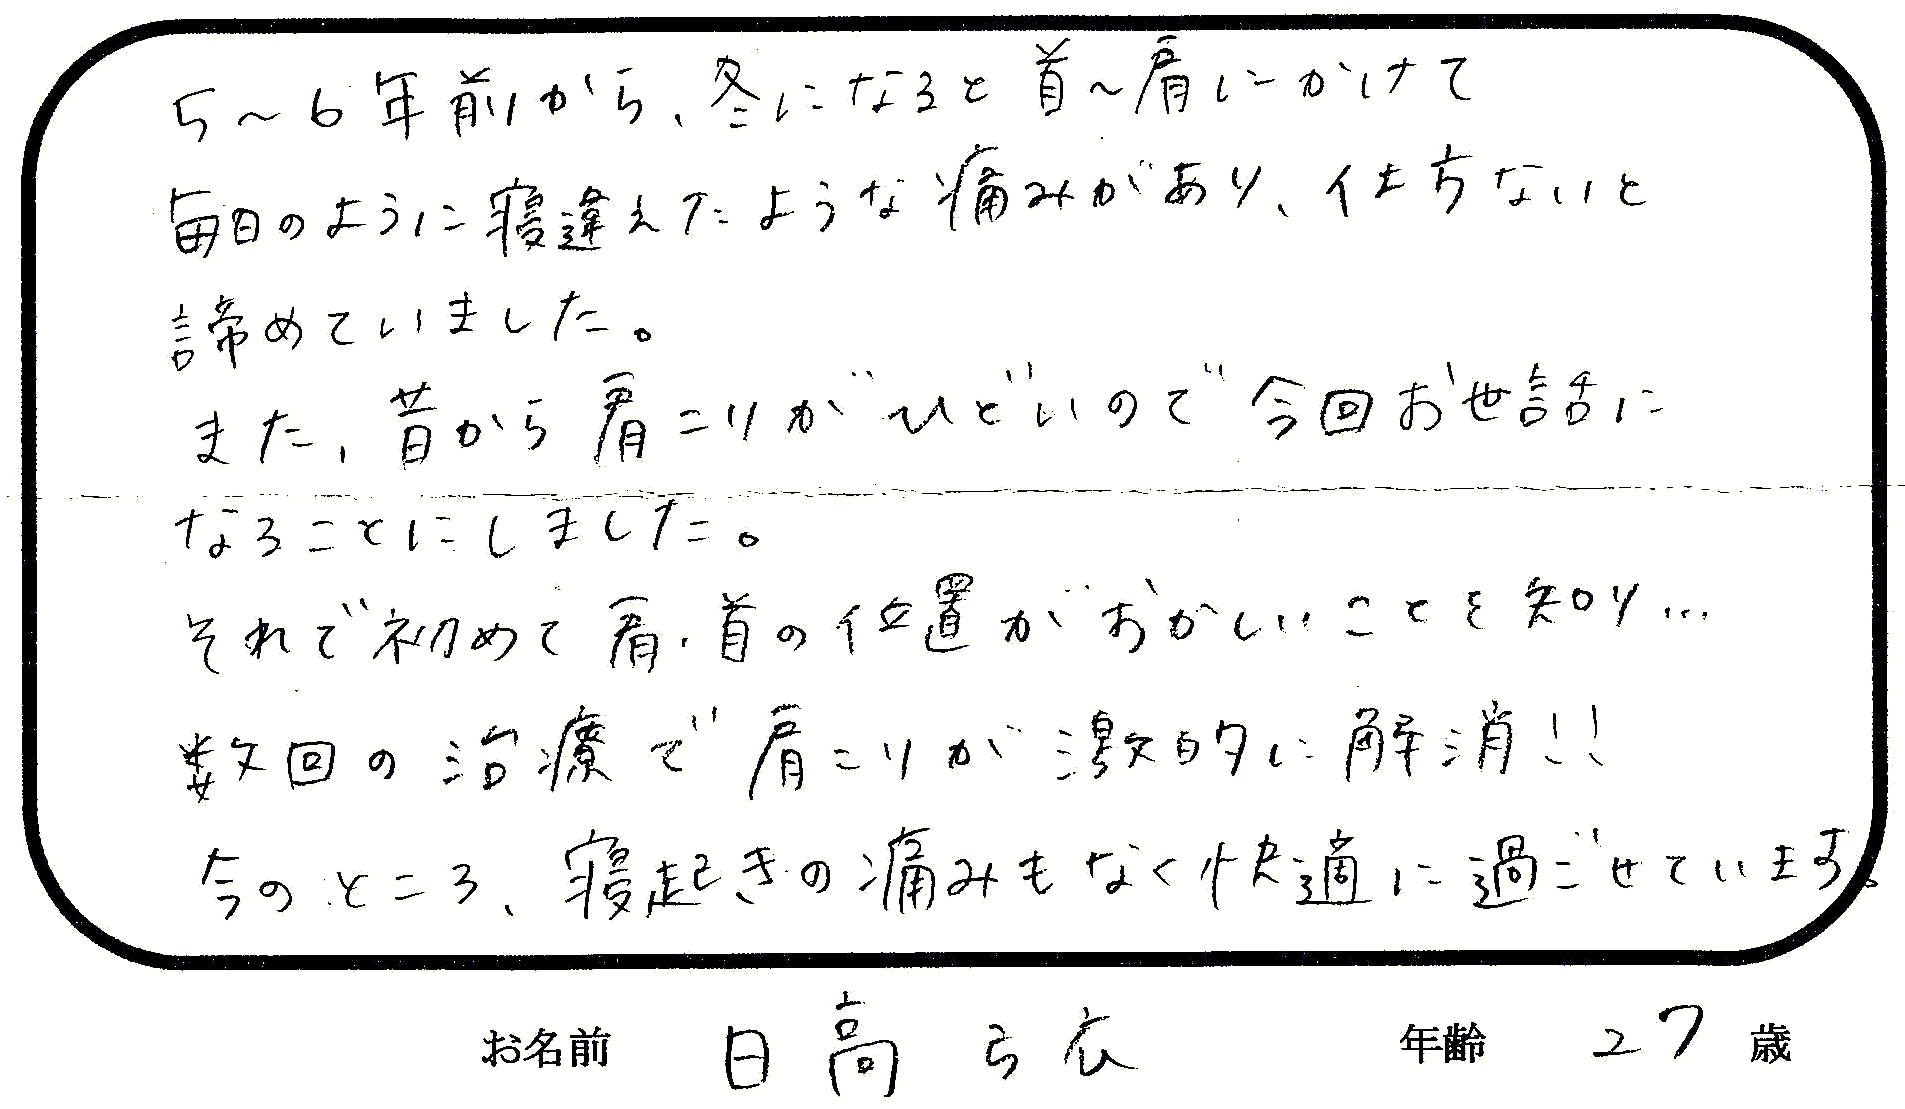 5〜6年前から、冬になると首〜肩にかけて
毎日のように寝違えたような痛みがあり、仕方ないと
諦めていました。
また、昔から肩こりがひどいので今回お世話に
なることにしました。
それで初めて肩・首の位置がおかしいことを知り…
数回の治療で肩こりが激的に解消!!
今のところ、寝起きの痛みもなく快適に過ごせています。
お名前 日高 弓衣 年齢 27 歳